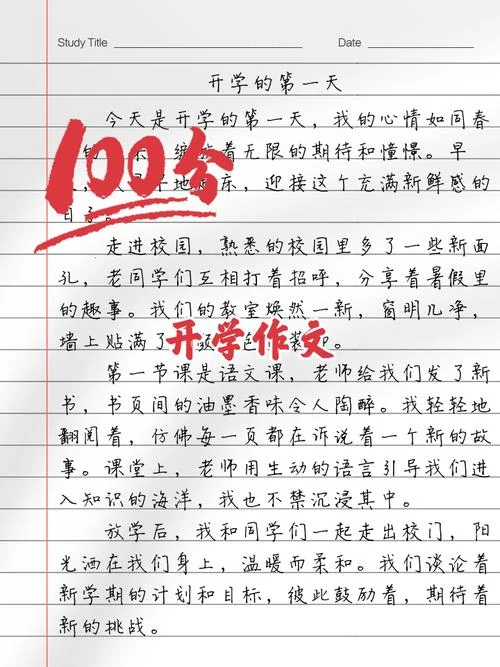 Study Title
Date
开学的第一天
今天是开学的第一天，我的心情如同春
缩放着无限的期待和憧憬。早
地起床，迎接这个充满新鲜感的
日子。
100分
走进校园，熟悉的校园里多了一些新面
孔，老同学们互相打着招呼，分享着暑假里
的趣事。我们的教室焕然一新，窗明几净，
墙上贴满了
开学作文
第一节课是语文课，老师给我们发了新
书，书页间的油墨香味令人陶醉。我轻轻地
翻阅着，仿佛每一页都在诉说着一个新的故
事。课堂上，老师用生动的语言引导我们进
入知识的海洋，我也不禁沉浸其中。
放学后，我和同学们一起走出校门，阳
光洒在我们身上，温暖而柔和。我们谈论着
新学期的计划和目标，彼此鼓励着，期待着
新的挑战。